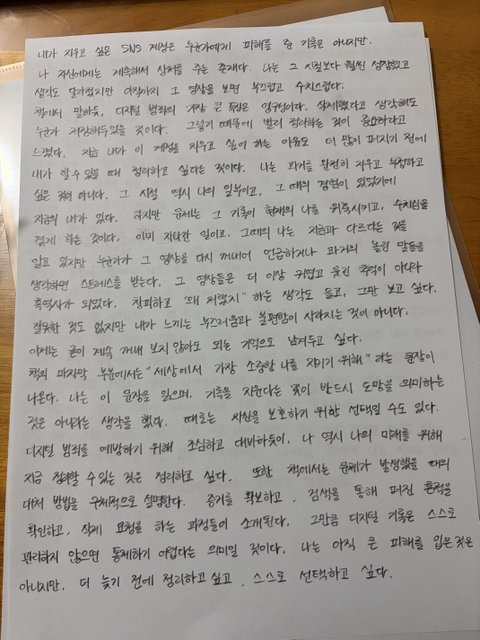 내가 지우고 싶은 SNS 계정은 누군가에게 피해를 준 기록은 아니지만,
나 자신에게는 계속해서 상처를 주는 존재다. 나는 그 시절보다 훨씬 성장했고
생각도 달라졌지만 여전히 그 영상을 보면 부끄럽고 수치스럽다.
책에서 말하듯, 디지털 범죄의 가장 큰 특징은 영구성이다. 삭제했다고 생각해도
누군가 저장해두었을 것이다. 그렇기 때문에 빨리 정리하는 것이 중요하다고
느꼈다. 지금 내가 이 계정을 지우고 싶어 하는 이유도 더 많이 퍼지기 전에
내가 할 수 있을 때 정리하고 싶다는 것이다. 나는 과거를 완전히 지우고 부정하고
싶은 것이 아니다. 그 시절 역시 나의 일부이고, 그 때의 경험이 있었기에
지금의 내가 있다. 하지만 문제는 그 기록이 현재의 나를 위축시키고, 수치심을
갖게 하는 것이다. 이미 지나간 일이고, 그때의 나는 지금과 다르다는 것을
알고 있지만 누군가가 그 영상을 다시 꺼내어 언급하거나 과거의 놀린 말들을
생각하면 스트레스를 받는다. 그 영상들은 더 이상 귀엽고 웃긴 추억이 아니라
흑역사가 되었다. 창피하고 "왜 저랬지" 하는 생각도 들고, 그만 보고 싶다.
잘못한 것도 없지만 내가 느끼는 부끄러움과 불편함이 사라지는 것이 아니다.
이제는 굳이 계속 꺼내 보지 않아도 되는 기억으로 남겨두고 싶다.
책의 마지막 부분에서는 "세상에서 가장 소중한 나를 지키기 위해" 라는 문장이
나온다. 나는 이 문장을 읽으며, 기록을 지운다는 것이 반드시 도망을 의미하는
것은 아니라는 생각을 했다. 때로는 자신을 보호하기 위한 선택일 수도 있다.
디지털 범죄를 예방하기 위해 조심하고 대비하듯이, 나 역시 나의 미래를 위해
지금 정리할 수 있는 것은 정리하고 싶다. 또한 책에서는 문제가 발생했을 때의
대처 방법을 구체적으로 설명한다. 증거를 확보하고, 검색을 통해 퍼진 흔적을
확인하고, 삭제 요청을 하는 과정들이 소개된다. 그만큼 디지털 기록은 스스로
관리하지 않으면 통제하기 어렵다는 의미일 것이다. 나는 아직 큰 피해를 입은 것은
아니지만, 더 늦기 전에 정리하고 싶고, 스스로 선택하고 싶다.